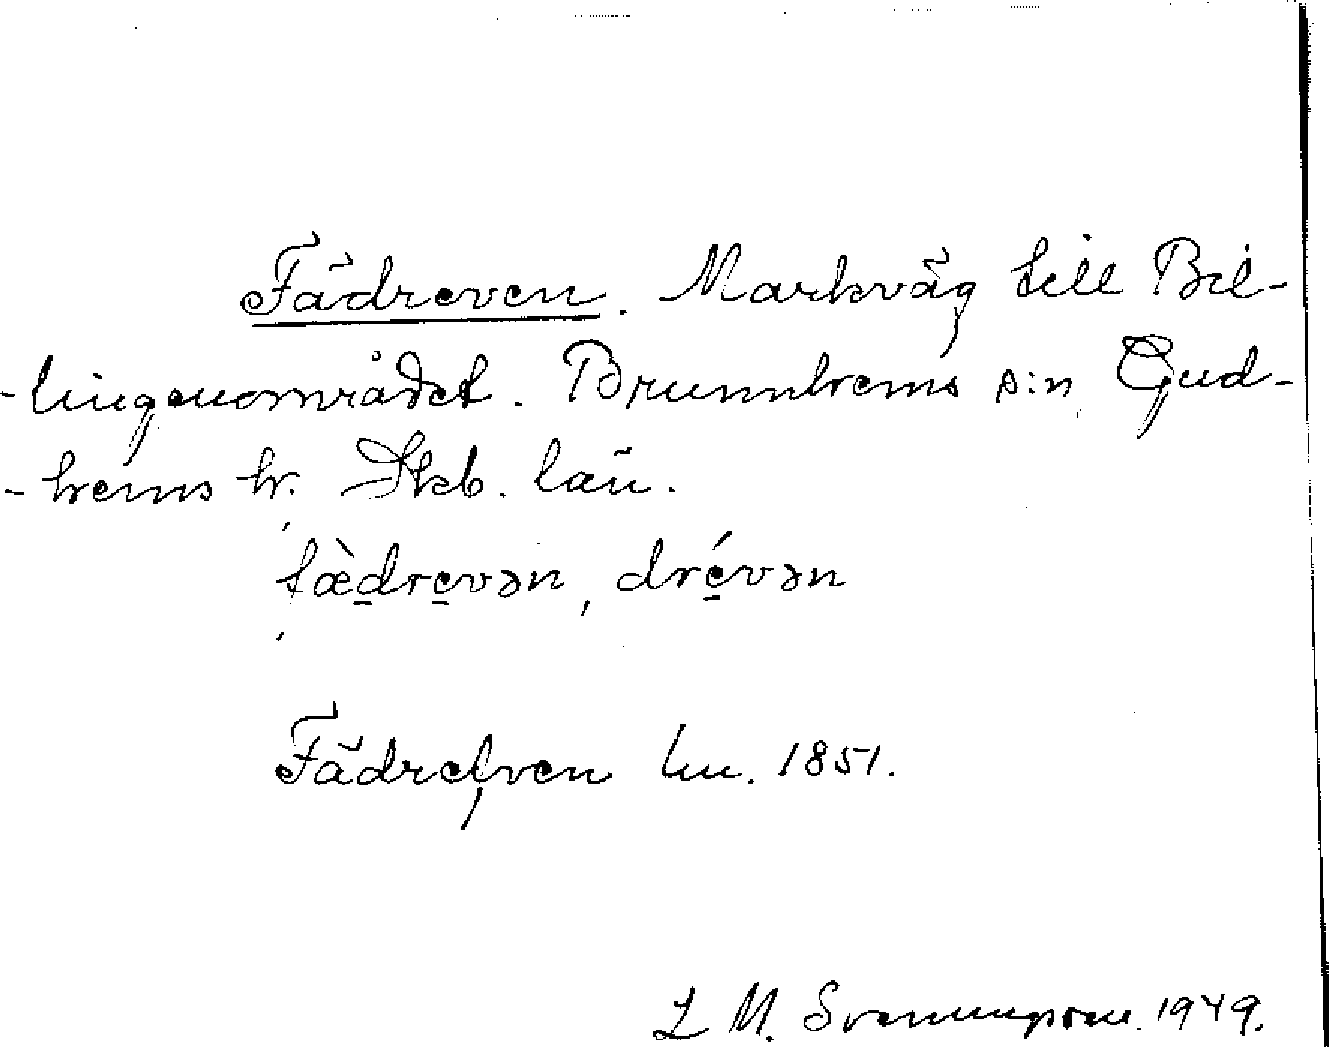 Fädreven. Markväg till Bil-
-lingenområdet. Brunnhems s:n, Gud-
-hems hr. Skb. län.
fæ̀drevən, drévən
Fädrefven lm. 1851.
L M. Svenungsson. 1949.